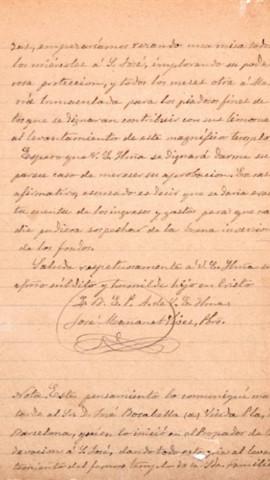 das, empezariamos rezando una misa todos
los miércoles á S. José, implorando su pode
rosa proteccion, y todos los meses otra á Ma
ria Inmaculada para los piadosos fines de
los que se dignaran contribuir con sus limosnas
al levantamiento de este magnífico templo.
Espero que V. E. Ilma. se dignará darme su
parecer caso de merecer su aprobacion. En caso
afirmativo, escusado es decir que se daria exac
ta cuenta de los ingresos y gastos para que na
die pudiera sospechar de la buena inversion
de los fondos.
Saluda respetuosamente á V. E. Ilma. su
afmo. súbdito y humilde hijo en Cristo
Q. B. S. P. A. de V. E. Ilma.
José Mañanet y Vives, Pbro.
Nota. Este pensamiento lo comuniqué
al Sr. D. José Bocabella
Barcelona, quien lo inició en el Propagador de la
devocion á S. José, dando todo esto al levan
tamiento del famoso templo de la Sda. Familia